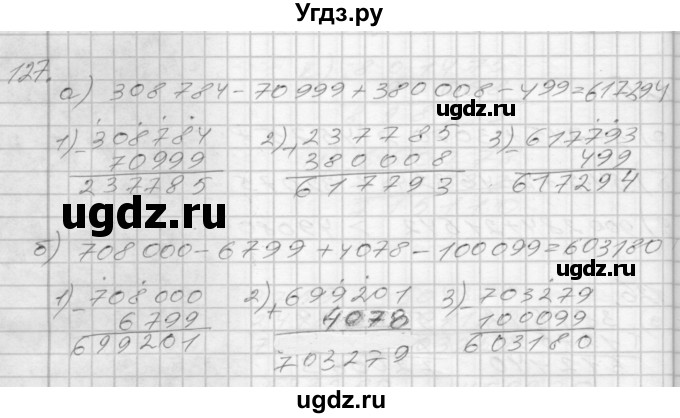 Угдз.ру
127.
а) 308 784 - 70 999 + 380 008 - 499 = 617294
угдз.ру
1) - 308784 2) + 237785 3) - 617793
70999 380008 499
237785 617793 617294
угдз.ру
б) 708 000 - 6799 + 4078 - 100099 = 603180
1) - 708000 2) + 699201 3) - 703279
6799 4078 100099
699201 703279 603180
угдз.ру